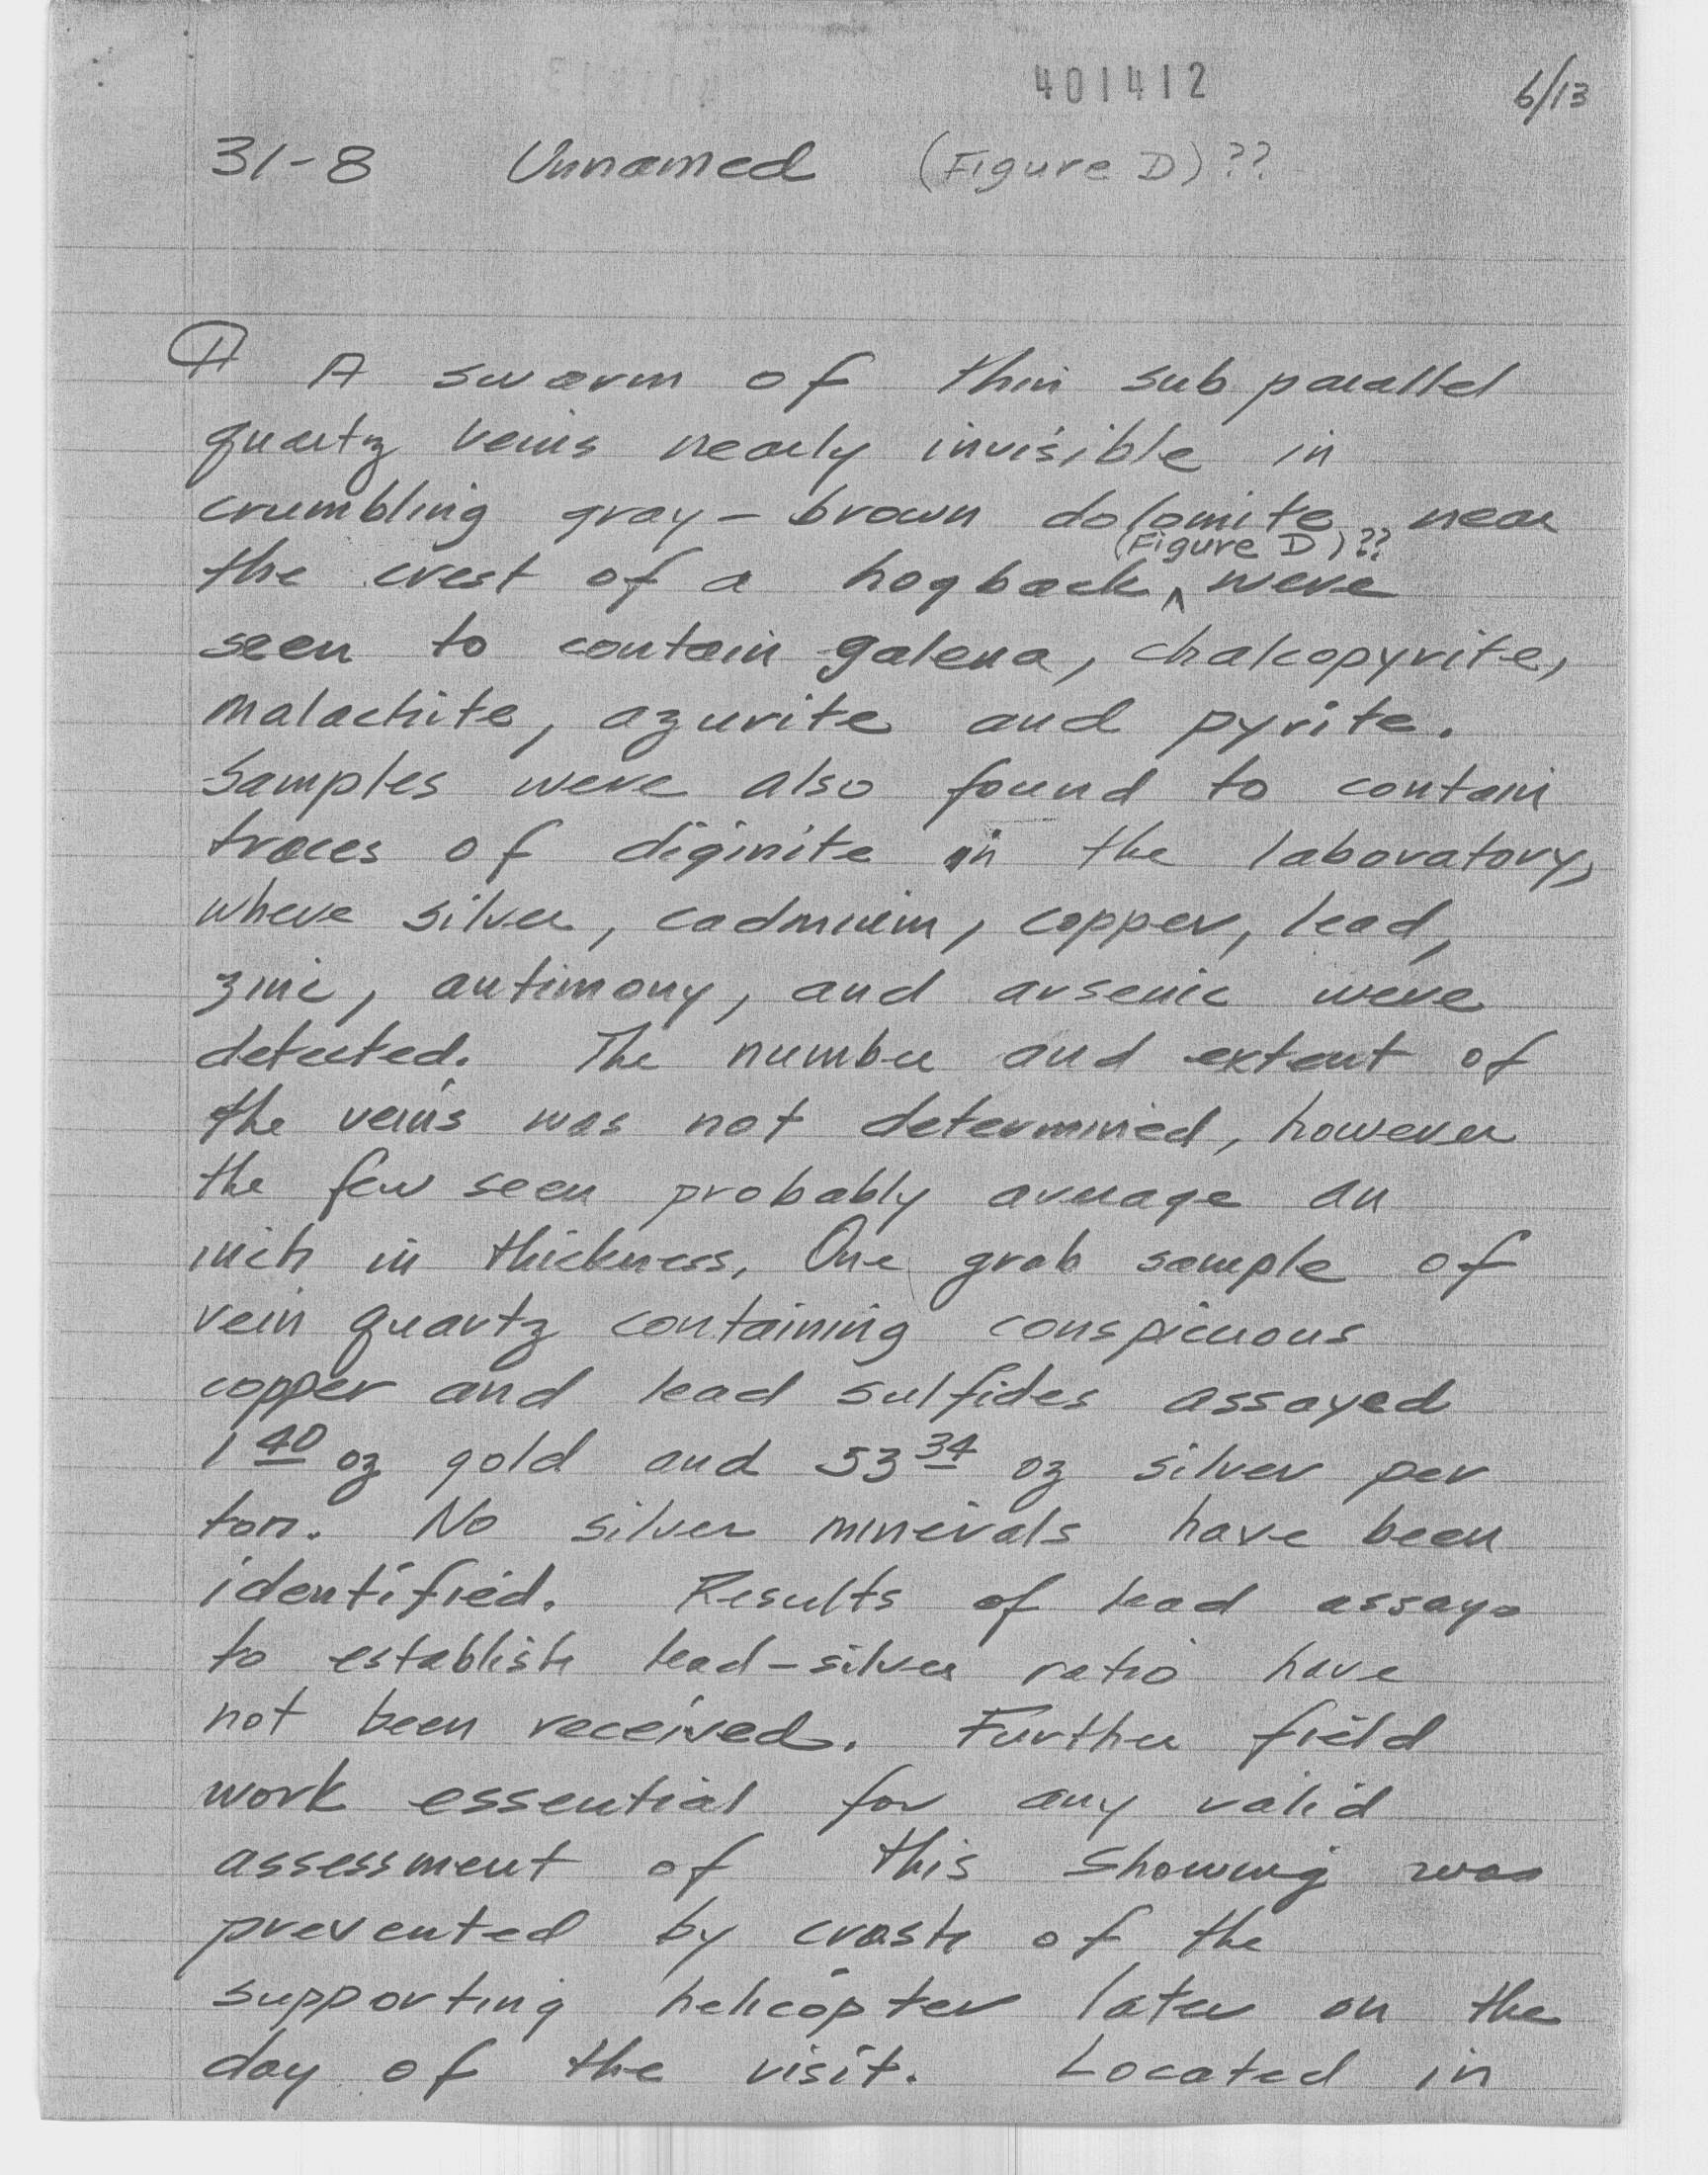 401412
6/13
31-8 Unnamed (Figure D)??
¶ A swarm of thin sub parallel
quartz veins nearly invisible in
crumbling gray-brown dolomite near
(Figure D)??
the crest of a hogback ^ were
seen to contain galena, chalcopyrite,
malachite, azurite and pyrite.
Samples were also found to contain
traces of diginite in the laboratory,
where silver, cadmium, copper, lead,
zinc, antimony, and arsenic were
detected. The number and extent of
the veins was not determined, however
the few seen probably average an
inch in thickness. One grab sample of
vein quartz containing conspicuous
copper and lead sulfides assayed
1 40 oz gold and 53 34 oz silver per
ton. No silver minerals have been
identified. Results of lead assays
to establish lead-silver ratio have
not been received. Further field
work essential for any valid
assessment of this showing was
prevented by crash of the
supporting helicopter later on the
day of the visit. Located in